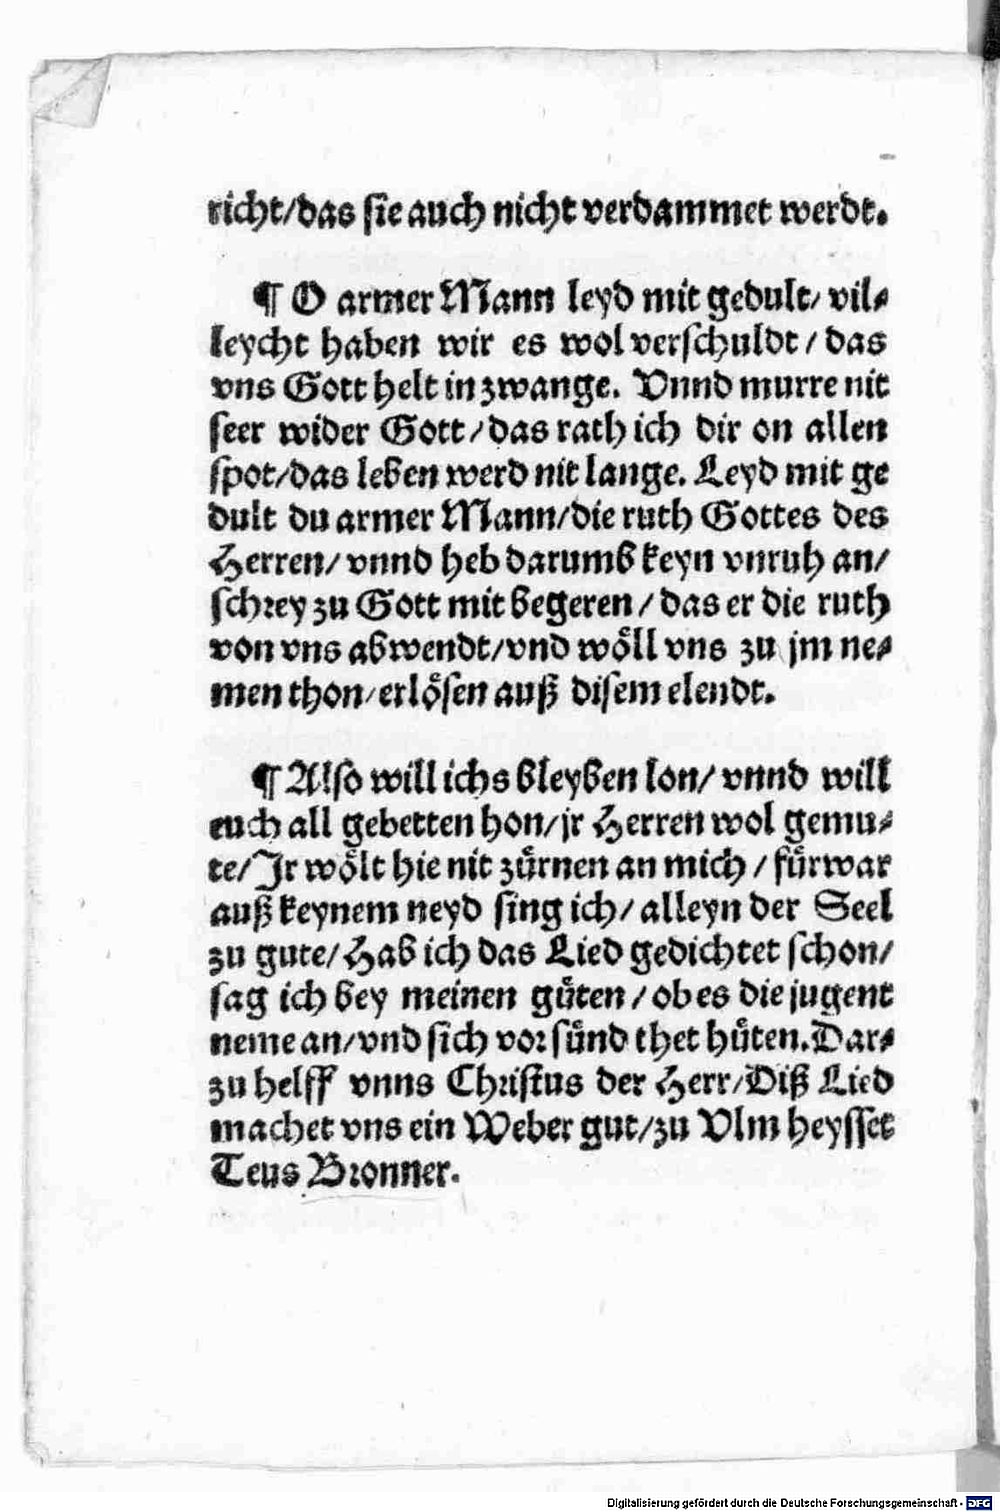 richt/das sie auch nicht verdammet werdt.
¶ O armer Mann leyd mit gedult/ vil⸗
leycht haben wir es wol verschuldt / das
vns Gott helt in zwange. Vnnd murre nit
seer wider Gott/das rath ich dir on allen
spot/das leben werd nit lange. Leyd mit ge
dult du armer Mann/die ruth Gottes des
Herren/ vnnd heb darumb keyn vnruh an/
schrey zu Gott mit begeren / das er die ruth
von vns abwendt/vnd wöll vns zu jm ne⸗
men thon/erlösen auß disem elendt.
¶ Also will ichs bleyben lon/ vnnd will
euch all gebetten hon/jr Herren wol gemu⸗
te/Jr wölt hie nit zürnen an mich / fürwar
auß keynem neyd sing ich/ alleyn der Seel
zu gute/ Hab ich das Lied gedichtet schon/
sag ich bey meinen güten / ob es die jugent
neme an/vnd sich vor sünd thet hüten. Dar⸗
zu helff vnns Christus der Herr/Diß Lied
machet vns ein Weber gut/zu Vlm heysset
Teus Bronner.
Digitalisierung gefördert durch die Deutsche Forschungsgemeinschaft - DFG